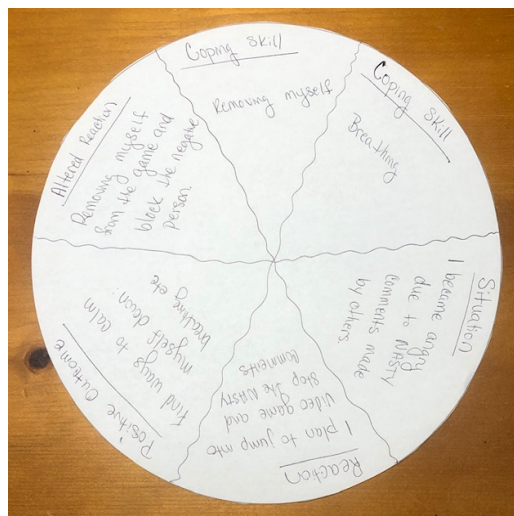 Coping Skill
Removing myself
Coping Skill
Breathing
Situation
I became angry
due to NASTY
comments made
by others
Reaction
I plan to jump into
video game and
stop the NASTY
comments
Positive Outcome
find ways to calm
myself down:
breathing etc
Altered Reaction
Removing myself
from the game and
block the negative
person.